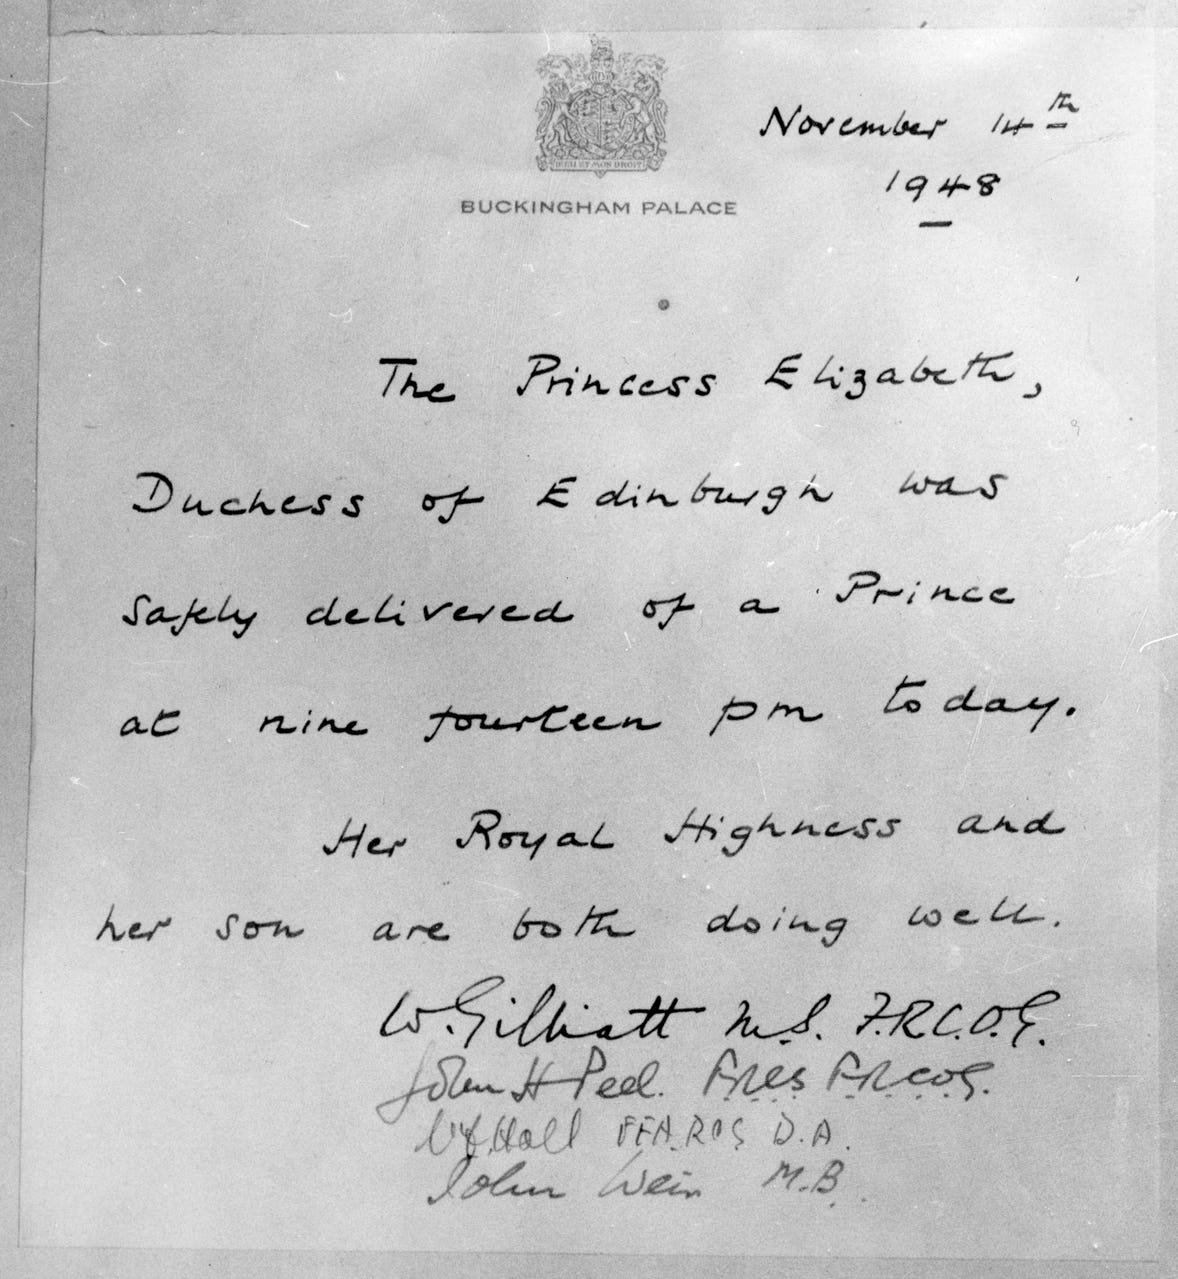 November 14th
1948
DIEU ET MON DROIT
BUCKINGHAM PALACE
The Princess Elizabeth,
Duchess of Edinburgh was
safely delivered of a Prince
at nine fourteen pm today.
Her Royal Highness and
her son are both doing well.
W. Gilliatt M.S. F.R.C.O.G.
John H Peel. F.R.C.S F.R.C.O.G.
Hall F.F.A.R.C.S D.A.
John Weir M.B.